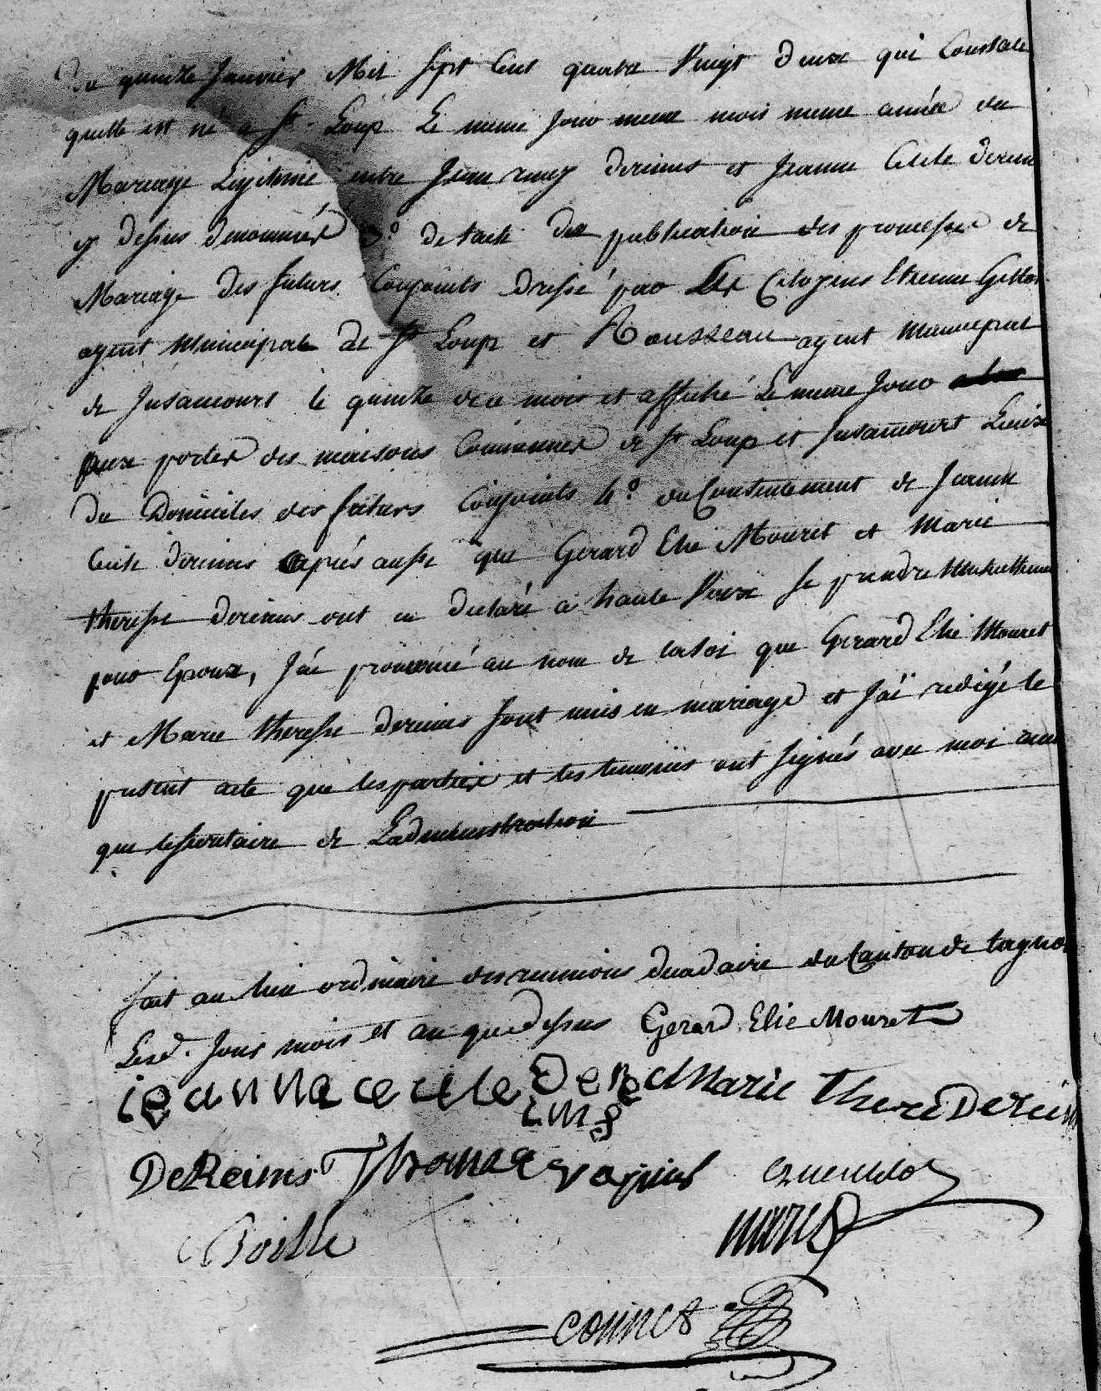 du quinze Janvier Mil sept Cent quatre Vingt deux qui Constate
quelle est né a St Loup Le meme Jour meme mois meme année du
Mariage Legitime entre Jean remy dereims et Jeanne Cecile dereim
cy dessus denommés 3º de lacte de publication des promesses de
Mariage des futurs Conjoints dressé par Les Citoyens Etienne Gillot
agent Municipal de St Loup et Rousseau agent Municipal
de Jusancourt le quinze de ce mois et affiché Le meme Jour
aux portes des maisons Communes de St Loup et Jusancourt Lieux
du Domiciles des futurs Conjoints 4º du Consentement de Jeanne
Cecile dereims après aussi que Gerard Elie Mouret et Marie
therese dereims ont eu declaré a haute Voix se prendre Mutuellement
pour Epoux, J'ai prononcé au nom de la loi que Gerard Elie Mouret
et Marie therese dereims sont unis en mariage et J'ai redigé le
present acte que les parties et les temoins ont signés avec moi ainsi
que le secretaire de Ladministration
fait au lieu ordinaire des reunions decadaire du Canton de tagnon
Lesd. Jour mois et an que dessus Gerard Elie Mouret
ieanna cecile Dere Marie Therese Dereims
ims
DeReims Thomas
Boillé